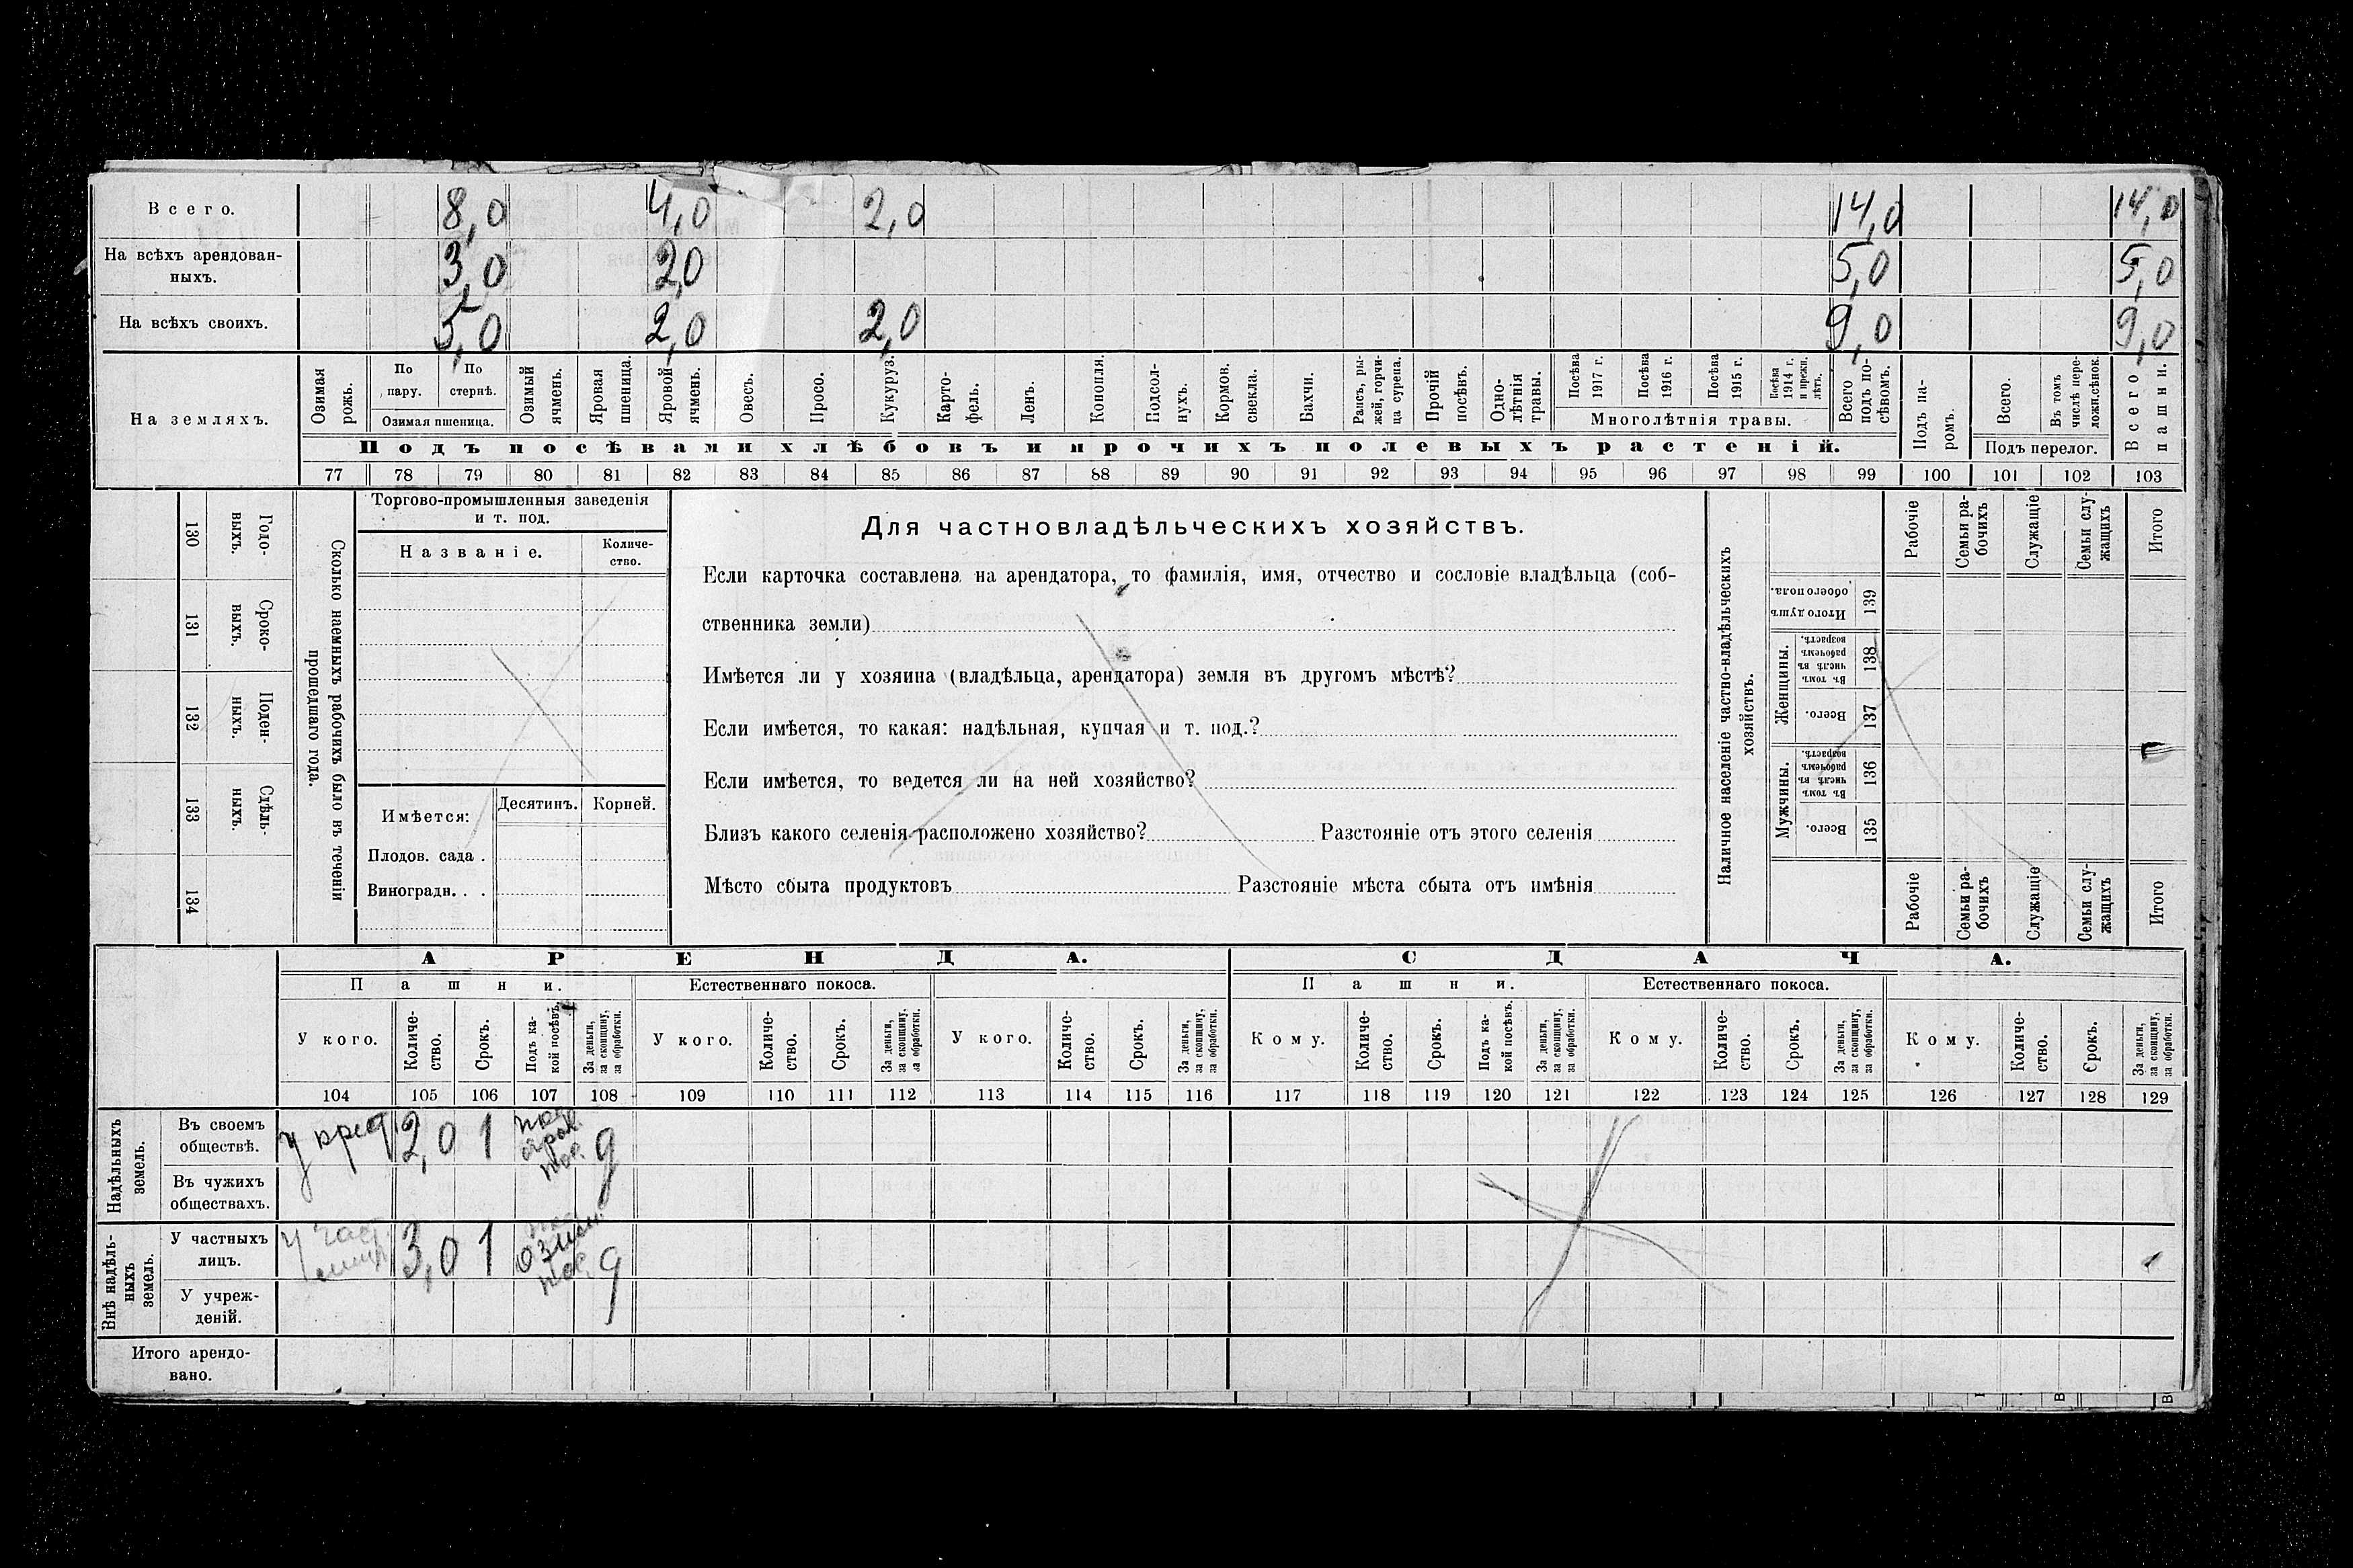 Всего. 8,0 4,0 2,0 14,0 14,0
На всѣхъ арендован-
ныхъ. 3,0 2,0 5,0 5,0
На всѣхъ своихъ. 5,0 2,0 2,0 9,0 9,0
На земляхъ.
Озимая рожь.
По пару.
По стернѣ.
Озимая пшеница.
Озимый ячмень.
Яровая пшеница.
Яровой ячмень.
Овесъ.
Просо.
Кукуруз.
Карто-
фель.
Ленъ.
Конопля.
Подсол-
нухъ.
Кормов. свекла.
Бахчи.
Рапсъ, ры-
жей, горчи-
ца сурепа.
Прочій посѣвъ.
Одно-
лѣтнія травы.
Посѣва 1917 г.
Посѣва 1916 г.
Посѣва 1915 г.
Посѣва 1914 г. и прежн. лѣтъ.
Многолѣтнія травы.
Всего подъ по-
сѣвомъ.
Подъ па-
ромъ.
Всего.
Въ томъ числѣ пере-
ложн.сѣнок.
Подъ перелог.
Всего пашни.
Подъ посѣвами хлѣбовъ и прочихъ полевыхъ растеній.
77 78 79 80 81 82 83 84 85 86 87 88 89 90 91 92 93 94 95 96 97 98 99 100 101 102 103
130 Годо-
выхъ.
131 Сроко-
выхъ.
132 Поден-
ныхъ.
133 Сдѣль-
ныхъ.
134
Сколько наемныхъ рабочихъ было въ теченіи
прошедшаго года.
Торгово-промышленныя заведенія
и т. под.
Названіе.
Количе-
ство.
Имѣется:
Десятинъ.
Корней.
Плодов. сада .
Виноградн. . .
Для частновладѣльческихъ хозяйствъ.
Если карточка составлена на арендатора, то фамилія, имя, отчество и сословіе владѣльца (соб-
ственника земли)
Имѣется ли у хозяина (владѣльца, арендатора) земля въ другомъ мѣстѣ?
Если имѣется, то какая: надѣльная, купчая и т. под.?
Если имѣется, то ведется ли на ней хозяйство?
Близъ какого селенія расположено хозяйство? Разстояніе отъ этого селенія
Мѣсто сбыта продуктовъ Разстояніе мѣста сбыта отъ имѣнія
Наличное населеніе частно-владѣльческихъ
хозяйствъ.
Рабочіе
Семьи ра-
бочихъ
Служащіе
Семьи слу-
жащихъ
Итого
Итого душъ обоего пола. 139
Женщины.
Въ томъ числѣ въ рабочемъ возрастѣ. 138
Всего. 137
Мужчины.
Въ томъ числѣ въ рабочемъ возрастѣ. 136
Всего. 135
Рабочіе
Семьи ра-
бочихъ
Служащіе
Семьи слу-
жащихъ
Итого
АРЕНДА. СДАЧА.
Пашни. Естественнаго покоса. Пашни. Естественнаго покоса.
У кого.
Количе-
ство.
Срокъ.
Подъ ка-
кой посѣвъ.
За деньги,
за скопщину,
за обработки.
У кого.
Количе-
ство.
Срокъ.
За деньги,
за скопщину,
за обработки.
У кого.
Количе-
ство.
Срокъ.
За деньги,
за скопщину,
за обработки.
Кому.
Количе-
ство.
Срокъ.
Подъ ка-
кой посѣвъ.
За деньги,
за скопщину,
за обработки.
Кому.
Количе-
ство.
Срокъ.
За деньги,
за скопщину,
за обработки.
Кому.
Количе-
ство.
Срокъ.
За деньги,
за скопщину,
за обработки.
104 105 106 107 108 109 110 111 112 113 114 115 116 117 118 119 120 121 122 123 124 125 126 127 128 129
Надѣльныхъ
земель.
Въ своемъ
обществѣ. у 2,0 1 пос. д
Въ чужихъ
обществахъ.
Внѣ надѣль-
ныхъ
земель.
У частныхъ
лицъ. у част. лиц. 3,0 1 озим. пос. д
У учреж-
деній.
Итого арендо-
вано.